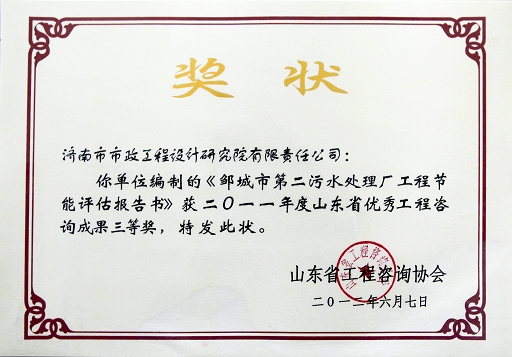 奖 状
济南市市政工程设计研究院有限责任公司：
你单位编制的《邹城市第二污水处理厂工程节
能评估报告书》获二〇一一年度山东省优秀工程咨
询成果三等奖，特发此状。
山东省工程咨询协会
二〇一二年六月七日